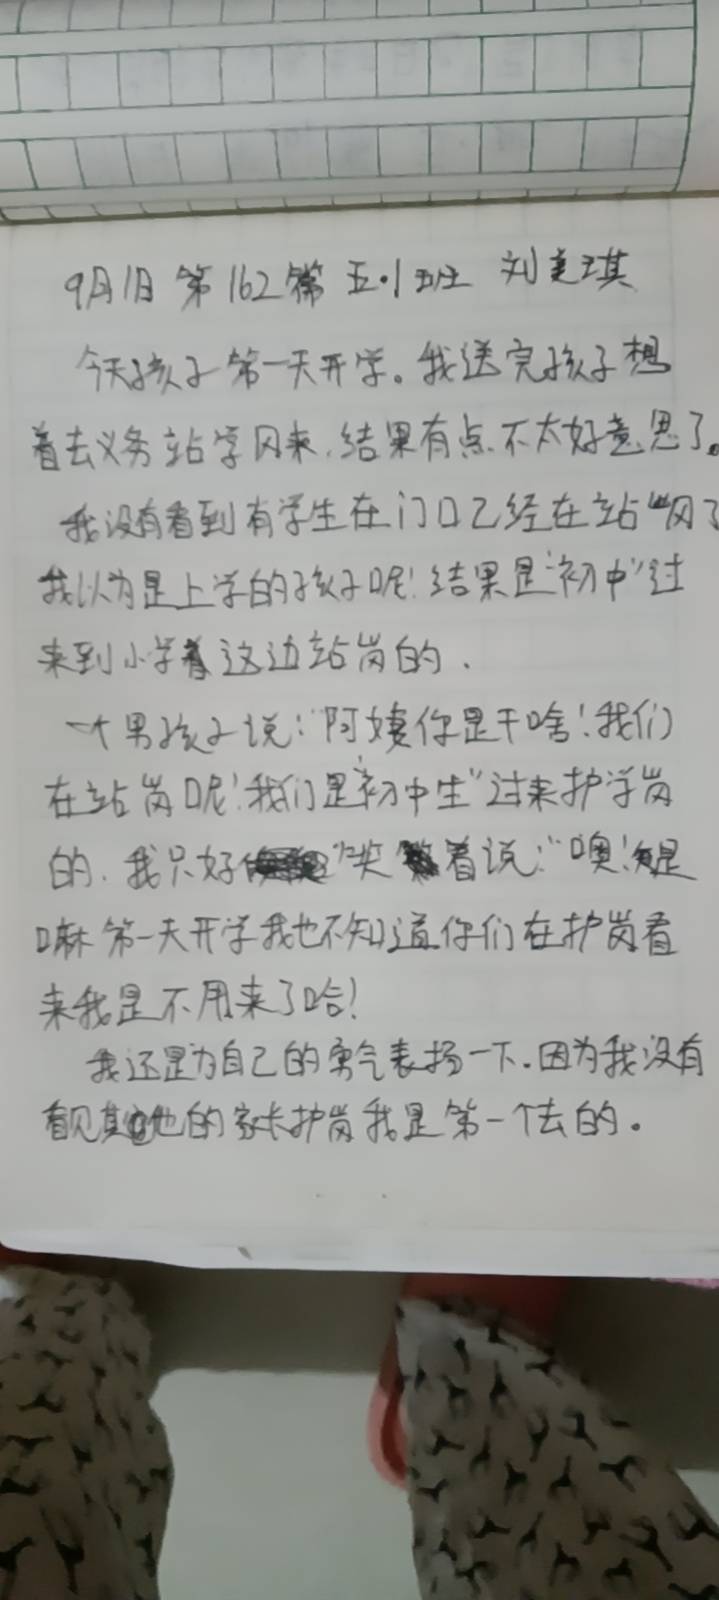 9月1日 第162篇 五·1班 刘美琪
今天孩子第一天开学。我送完孩子想
着去义务站学冈来.结果有点不太好意思了。
我没有看到有学生在门口已经在站"冈了
我认为是上学的孩子呢!结果是"初中"过
来到小学着这边站岗的.
一个男孩子说:"阿姨你是干啥!我们
在站岗呢!我们是"初中生"过来护学岗
的.我只好"笑着说:"噢!是
嘛第一天开学我也不知道你们在护岗看
来我是不用来了哈!
我还是为自己的勇气表扬一下.因为我没有
看见其他的家长护岗我是第一个去的。